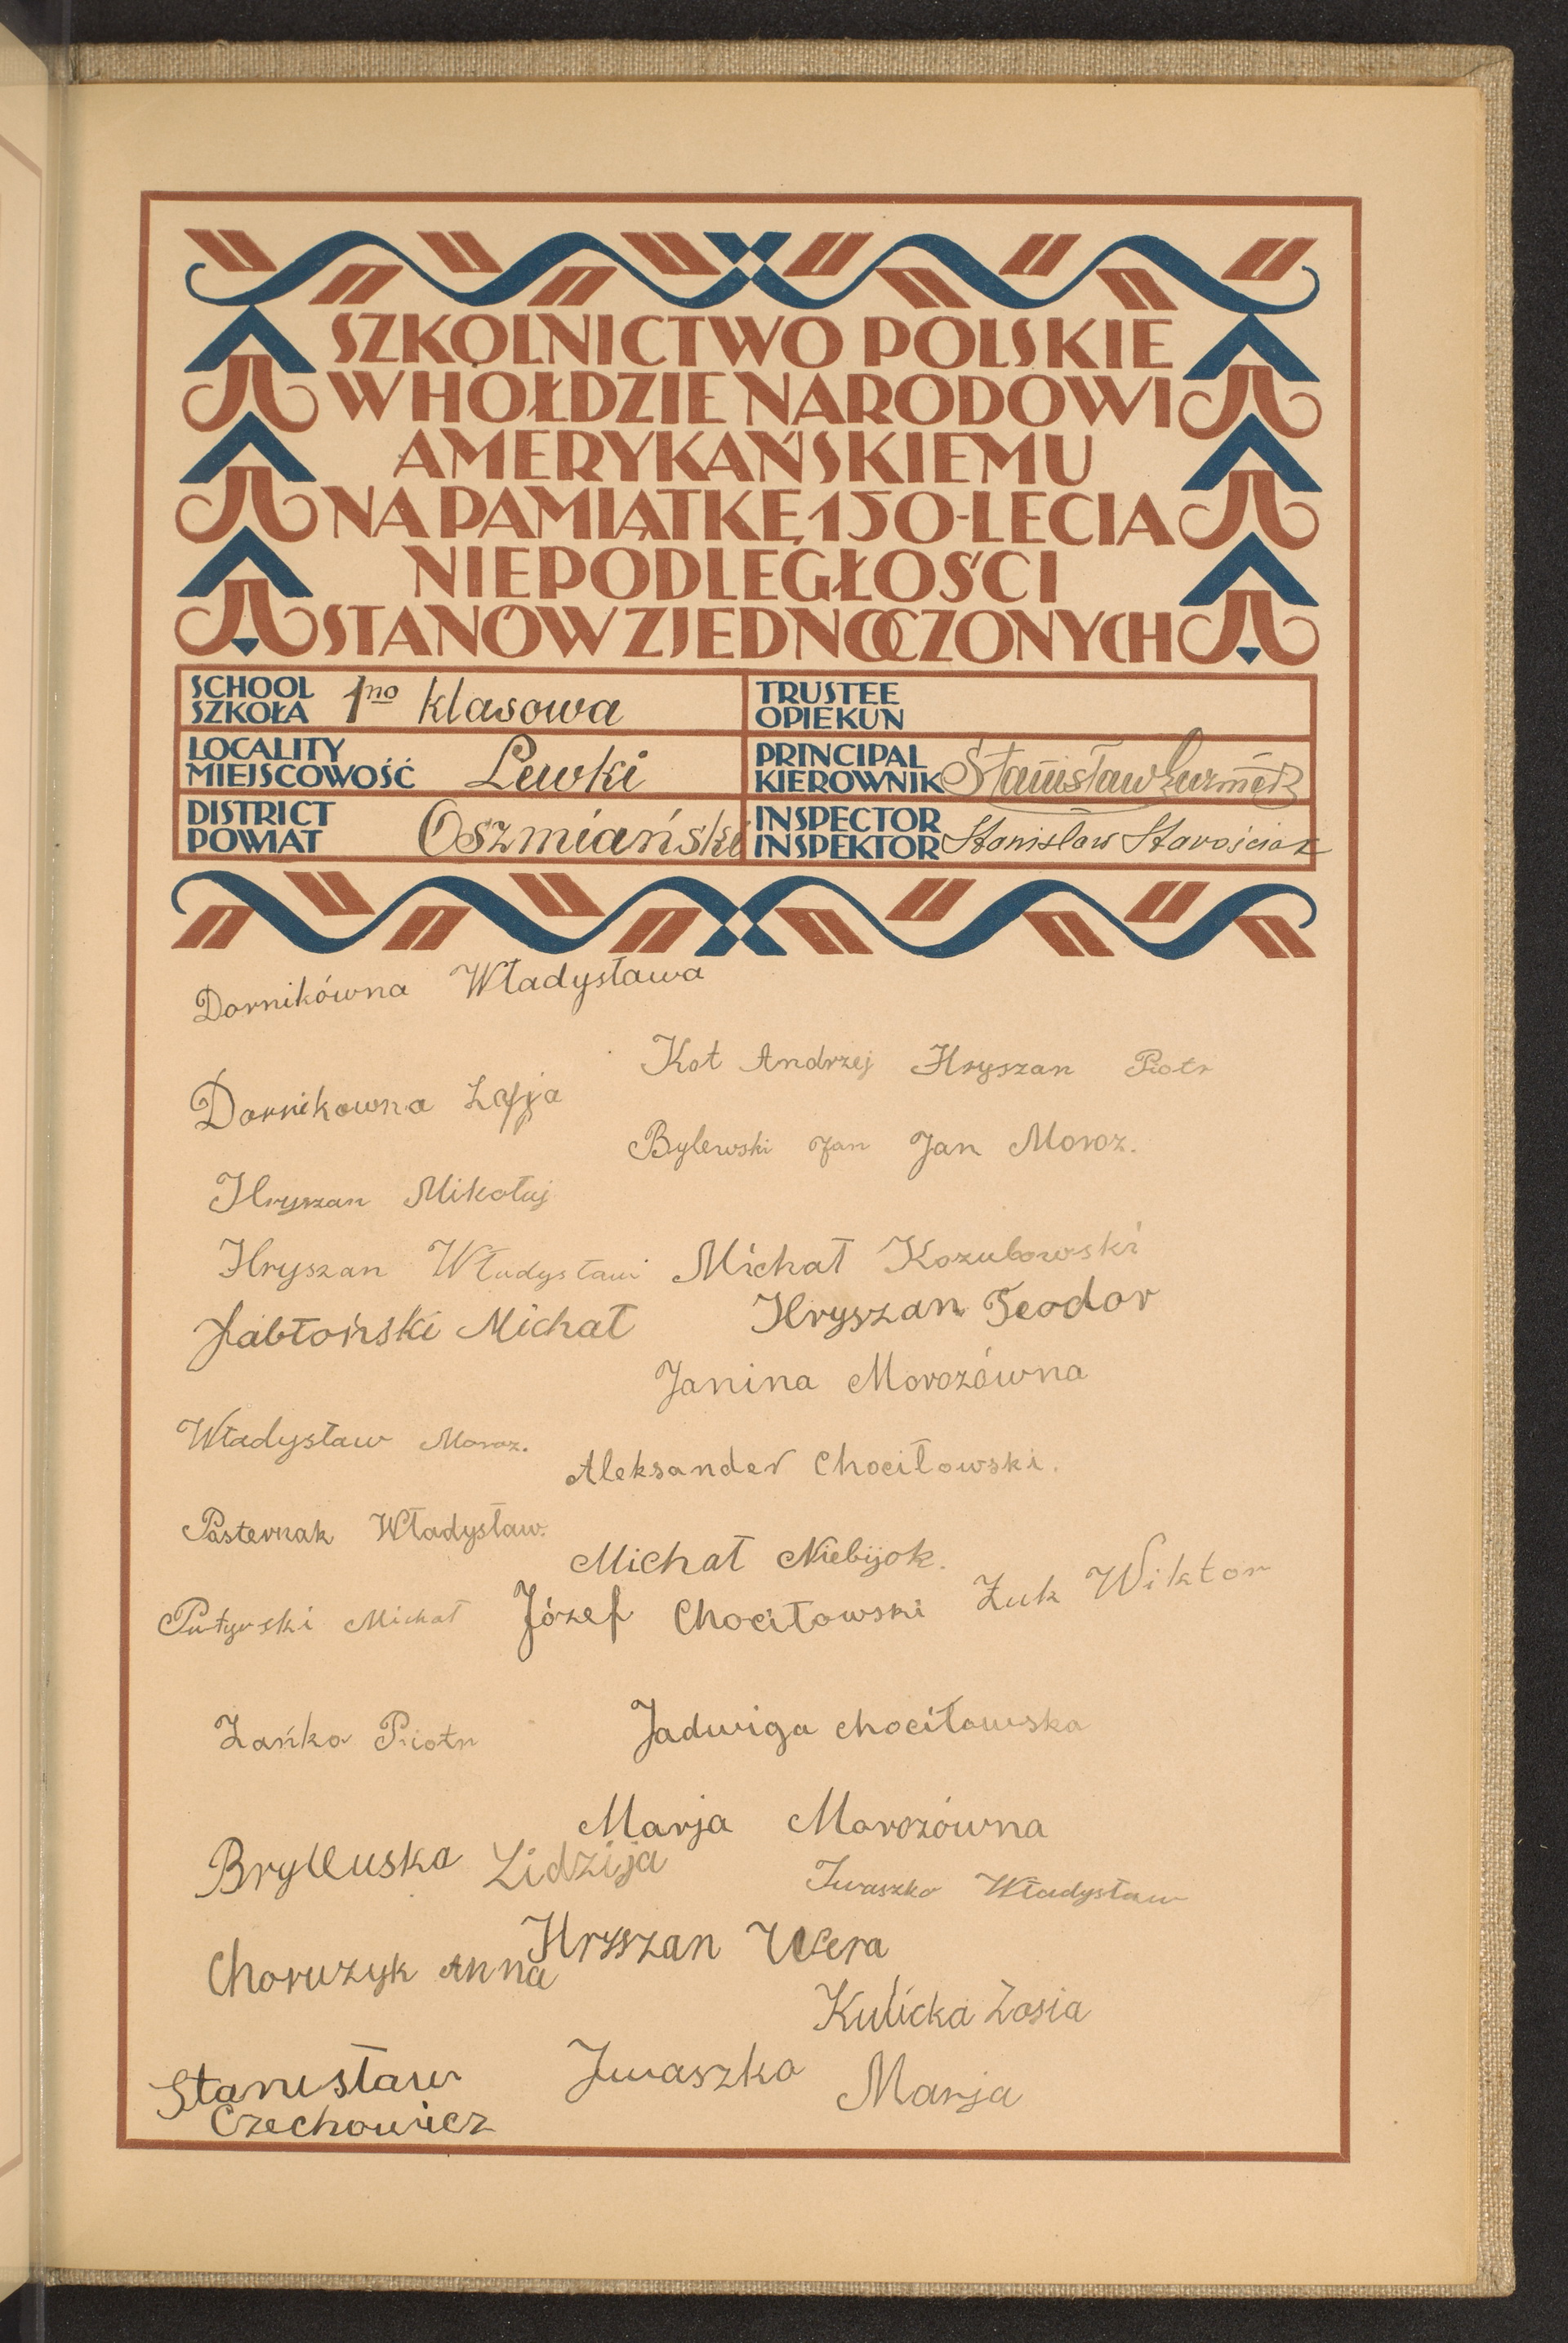 SZKOLNICTWO POLSKIE
W HOŁDZIE NARODOWI
AMERYKAŃSKIEMU
NA PAMIĄTKĘ 150-LECIA
NIEPODLEGŁOŚCI
STANÓW ZJEDNOCZONYCH
SCHOOL
SZKOŁA 1no klasowa
TRUSTEE
OPIEKUN
LOCALITY
MIEJSCOWOŚĆ Lewki
PRINCIPAL
KIEROWNIK Stanisław
DISTRICT
POWIAT Oszmiański
INSPECTOR
INSPEKTOR Stanisław Starościak
Dornikówna Władysława
Kot Andrzej Hryszan Piotr
Dornikowna Zofja
Bylewski Jan Jan Moroz.
Hryszan Mikołaj
Hryszan Władysław Michał Kozubowski
Jabłoński Michał Hryszan Teodor
Janina Morozówna
Władysław Moroz.
Aleksander Chociłowski.
Pasternak Władysław.
Michał Niebijok.
Michał Józef Chociłowski Żuk Wiktor
Zańko Piotr Jadwiga Chociłowska
Marja Morozówna
Brylluska Lidzija
Iwaszko Władysław
Hryszan Wera
Choruzyk Anna
Kulicka Zosia
Stanisław Czechowicz
Iwaszko Marja